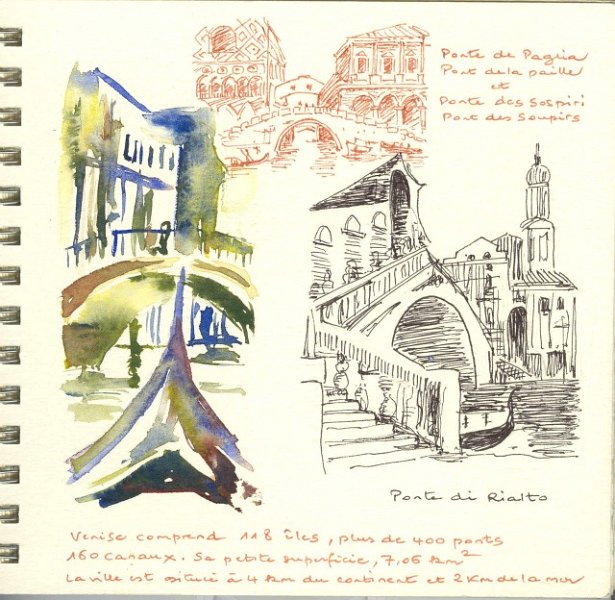 Ponte de Paglia
Pont de la paille
et
Ponte des Sospiri
Pont des Soupirs
Ponte di Rialto
Venise comprend 118 îles, plus de 400 ponts
160 canaux. Sa petite superficie, 7,06 km²
La ville est située à 4 km du continent et 2 km de la mer